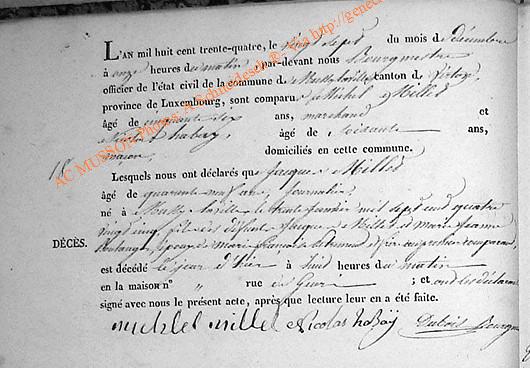 L'AN mil huit cent trente-quatre, le vingt sept du mois de décembre
à onze heures du matin par-devant nous Bourgmestre
officier de l'état civil de la commune de canton de
province de Luxembourg, sont comparu Michel Millet
âgé de cinquante six ans, marchand et
Nicolas habay, âgé de soixante ans,
maçon, domiciliés en cette commune.
18
Lesquels nous ont déclarés que Jacques Millet
âgé de quarante neuf ans, journalier,
né à le trente janvier mil sept cent quatre
vingt cinq fils des défunts Jacques Millet et marie jeanne
époux de marie
DÉCÈS.
est décédé le jour d'hier à huit heures du matin
en la maison n° " rue de ; et ont les déclarans
signé avec nous le présent acte, après que lecture leur en a été faite.
michel millet Nicolas habaÿ Dubois Bourgm
AC MUSSON Photos: A.Schneidesch ®-via http://genec